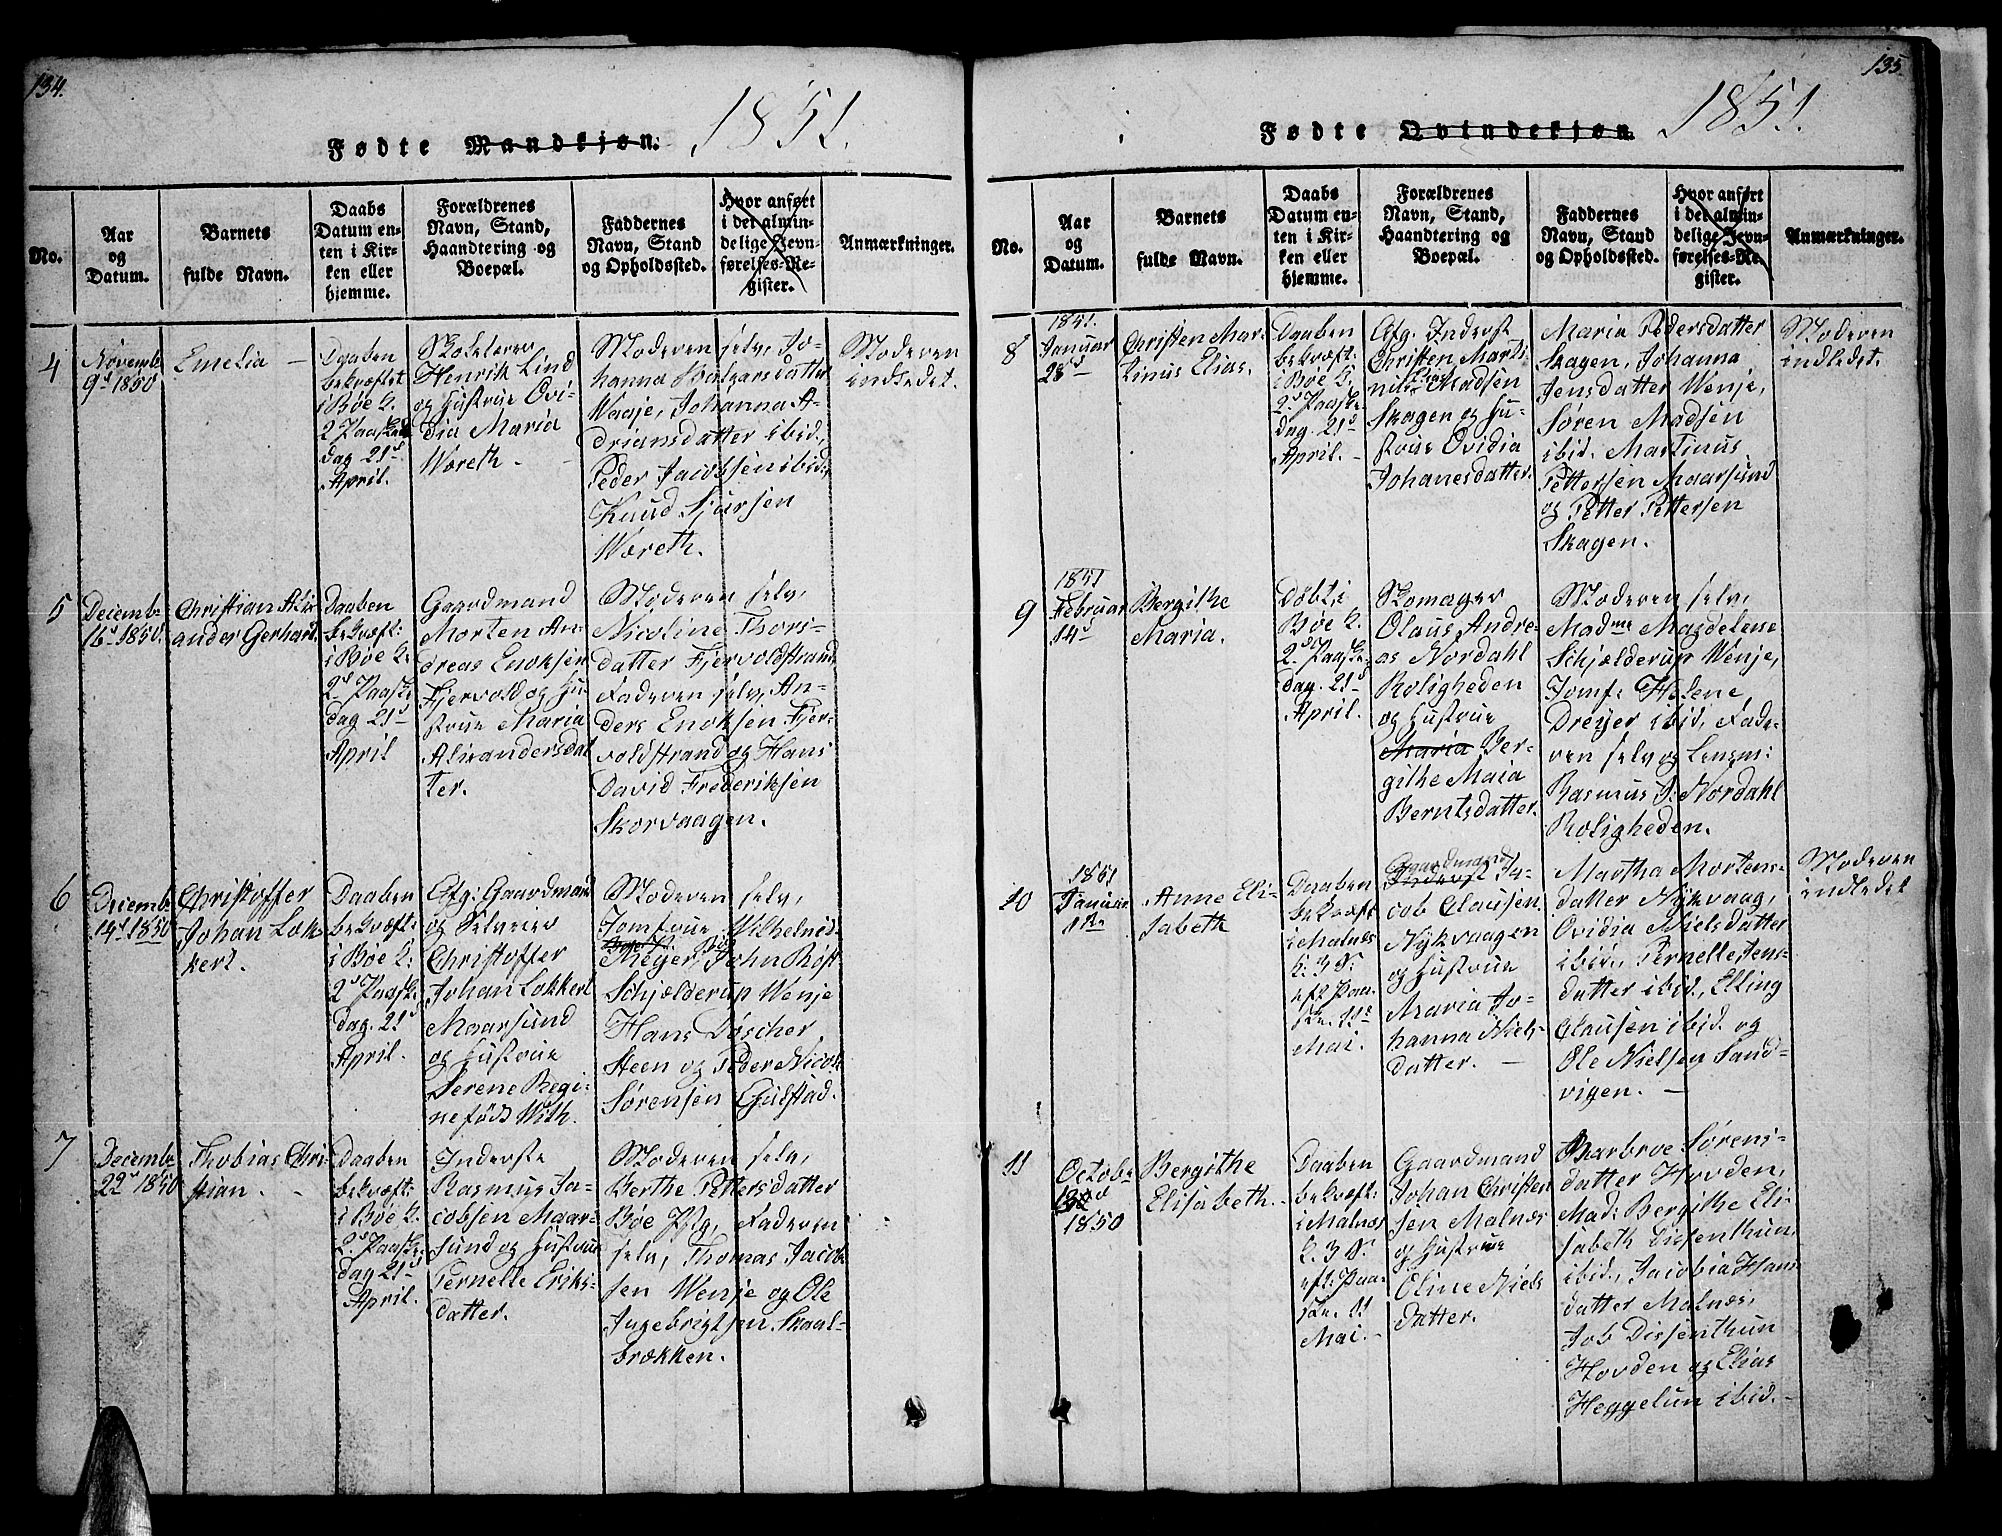 134.
1851.
Fødte Mandkjøn.
No.
Aar
og
Datum.
Barnets
fulde Navn.
Daabs
Datum en-
ten i Kir-
ken eller
hjemme.
Forældrenes
Navn, Stand,
Haandtering og
Boepæl.
Faddernes
Navn, Stand
og Opholdssted.
Hvor anført
i det almin-
delige Jevn-
førelses-Re-
gister.
Anmærkninger.
4
Novemb:
9d 1850
Emelia
Daaben
bekræftet
i Bøe K.
2 Paaske
dag 21d
April.
Skolelærer
Henrik Lind
og Hustrue Ovi-
dia Maria
Woreth.
Moderen selv, Jo-
hanna
Waaje, Johanna A-
driansdatter ibid,
Peder Jacobsen ibid,
Knud Sjursen
Woreth.
Moderen
indledet.
5
Decemb:
16d 1850.
Christian Alix-
ander Gerhard.
Daaben
bekræft:
i Bøe K.
2d Paaske
dag 21d
April
Gaardmand
Morten An-
dreas Enoksen
Fjervold og Hu-
strue Maria
Alixandersdat-
ter.
Moderen selv,
Nicoline Thors-
datter Fjervoldstrand
Faderen selv, An-
ders Enoksen Fjer-
voldstrand og Hans
David Frederiksen
Skorvaagen.
6
Decemb:
14d 1850
Christoffer
Johan Lok-
kert.
Daaben
bekræft:
i Bøe K:
2d Paaske
dag. 21d
April.
Afg: Gaardmand
og Selveier
Christoffer
Johan Lokkert
Maarsund
og Hustrue
Serene Regi-
ne født With.
Moderen selv,
Jomfrue Wilhelmine
Meyer, John Røst
Schjelderup Wenje
Hans Døscher
Steen og Peder Nicol:
Sørensen Guldstad.
7
Decemb:
22d 1850
Thobias Chri-
stian.
Daaben
bekræft:
i Bøe K.
2d Paaske
dag 21d
April.
Inderste
Rasmus Ja-
cobsen Maar-
sund og Hustrue
Pernelle Eriks-
datter.
Moderen selv,
Berthe Pettersdatter
Bøe Pstg, Faderen
selv, Thomas Jacob-
sen Wenje og Ole
Ingebrigtsen Skaal-
brækken.
135.
1851.
Fødte Qvindekjøn.
No.
Aar
og
Datum.
Barnets
fulde Navn.
Daabs
Datum en-
ten i Kir-
ken eller
hjemme.
Forældrenes
Navn, Stand,
Haandtering og
Boepæl.
Faddernes
Navn, Stand
og Opholdssted.
Hvor anført
i det almin-
delige Jevn-
førelses-Re-
gister.
Anmærkninger.
8
1851.
Januar
28d
Christen Mar-
tinus Elias.
Daaben
bekræft.
i Bøe K.
2d Paaske
dag. 21d
April.
Afg. Inderst
Christen Marti-
nus Elias Madsen
Skagen og Hu-
strue Ovidia
Johanesdatter.
Maria Pedersdatter
Skagen, Johanna
Jensdatter Wenje,
Søren Madsen
ibid. Martinus
Pettersen Maarsund
og Petter Pettersen
Skagen.
Moderen
indledet.
9
1851
Februar
14d
Bergithe
Maria.
Døbt i
Bøe K.
2d Paaske
dag. 21d
April.
Skomager
Olaus Andre-
as Nordahl
Roligheden
og Hustrue
Maria Ber-
githe Maia
Berntsdatter.
Moderen selv,
Madme Magdelene
Schjelderup Wenje,
Jomf: Helene
Dreyer ibid, Fade-
ren selv og Lensm:
Rasmus J. Nordahl
Roligheden.
10
1851
Januar
1ste
Anne Eli-
sabeth
Daaben
bekræft
i Malnes
K. 3 S.
eft Paa-
ske. 11te
Mai.
Gaardmand
Inderst Ja-
cob Clausen
Nykvaagen
og Hustrue
Maria Jo-
hanna Niels-
datter.
Martha Mortens-
datter Nykvaag,
Ovidia Nielsdatter
ibid, Pernelle Jens-
datter ibid, Elling
Clausen ibid. og
Ole Nielsen Sand-
vigen.
Moderen
indledet
11
Octob:
1850
Bergithe
Elisabeth.
Daaben
bekræft:
i Malnes
K. 3 S.
eft: Paa-
ske. 11
Mai.
Gaardmand
Johan Christen-
sen Malnes
og Hustrue
Oline Niels
datter.
Barbroe Sørens-
datter Hovden,
Mad: Bergithe Eli-
sabeth Dissenthun
ibid, Jacobia Hans
datter Malnes,
Job Dissenthun
Hovden og Elias
Heggelun ibid.